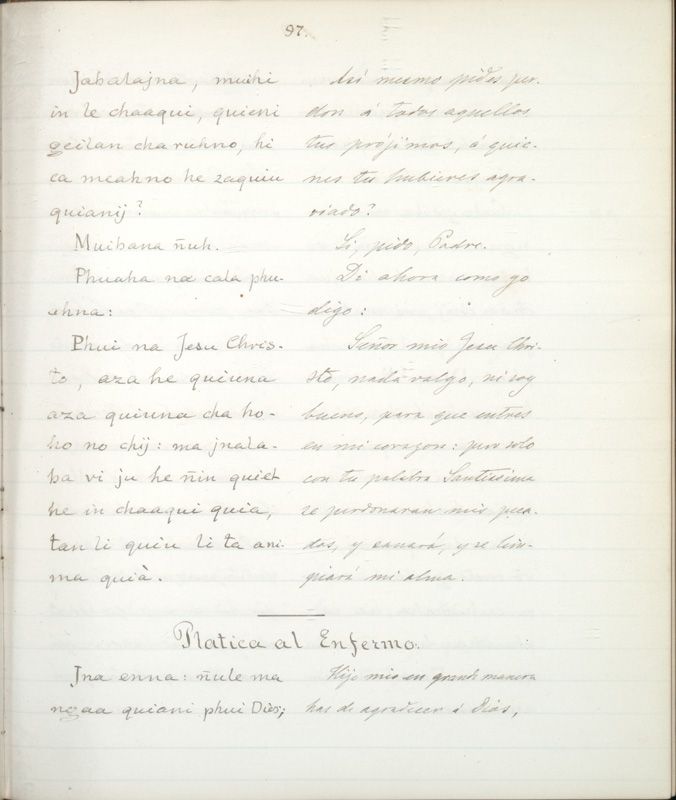 97.
Jabalajna, muihi
in le chaaqui, quieni
geilan cha ruhno, hi
ca meahno he zaquiu
quianij?
Muibana ñuh.
Phuaha na cala phu-
ahna:
Phui na Jesu Chris-
to, aza he quiuna
aza quiuna cha ho-
ho no chij: ma jnala-
ba vi ju he ñin quiet
he in chaaqui quia,
tan li quiu li ta ani-
ma quià.
Así mesmo pides per-
don á todos aquellos
tus prójimos, á quie-
nes tu hubieres agra-
viado?
Si, pido, Padre.
Di ahora como yo
digo:
Señor mio Jesu Chri-
sto, nada valgo, ni soy
bueno, para que entres
en mi corazon: pero solo
con tu palabra Santissima
se perdonaran mis peca-
dos, y sanará, y se lim-
piará mi alma.
Platica al Enfermo.
Jna enna: ñule ma
ngaa quiani phui Dios;
Hijo mio en grande manera
has de agradecer á Dios,